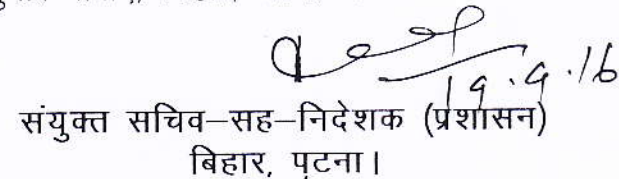 19.9.16
संयुक्त सचिव–सह–निदेशक (प्रशासन)
बिहार, पटना।